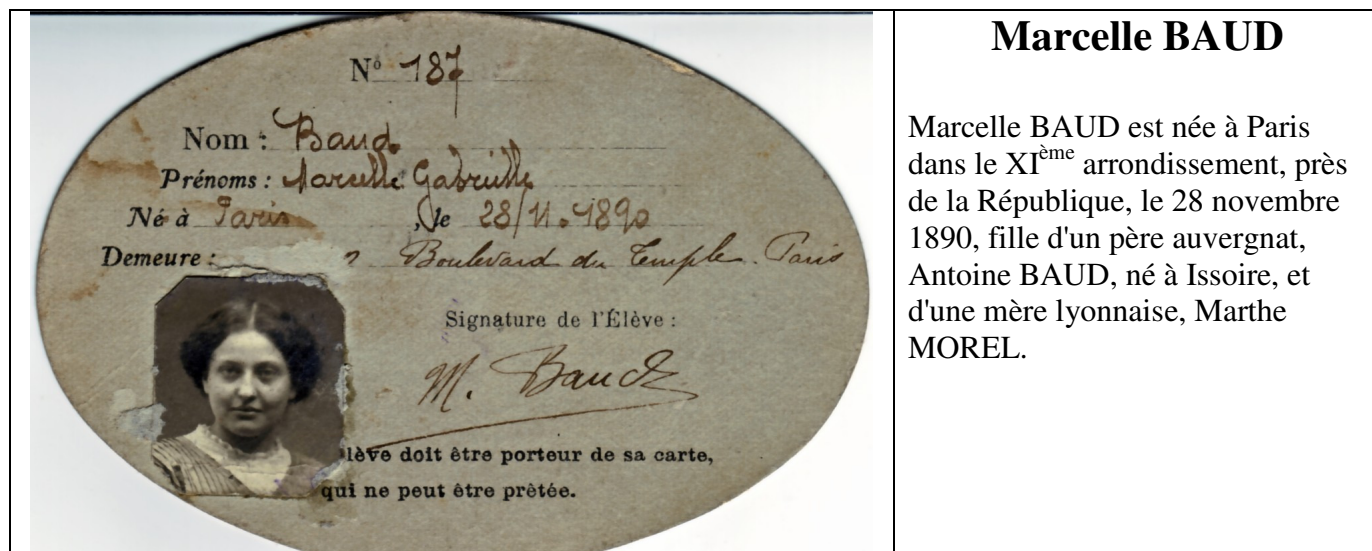 Nº 187
Nom : Baud
Prénoms : Marcelle Gabrielle
Né à Paris, le 28/11.1890
Demeure : Boulevard du Temple. Paris
Signature de l'Élève :
M. Baud
lève doit être porteur de sa carte,
qui ne peut être prêtée.
Marcelle BAUD
Marcelle BAUD est née à Paris
dans le XIème arrondissement, près
de la République, le 28 novembre
1890, fille d'un père auvergnat,
Antoine BAUD, né à Issoire, et
d'une mère lyonnaise, Marthe
MOREL.